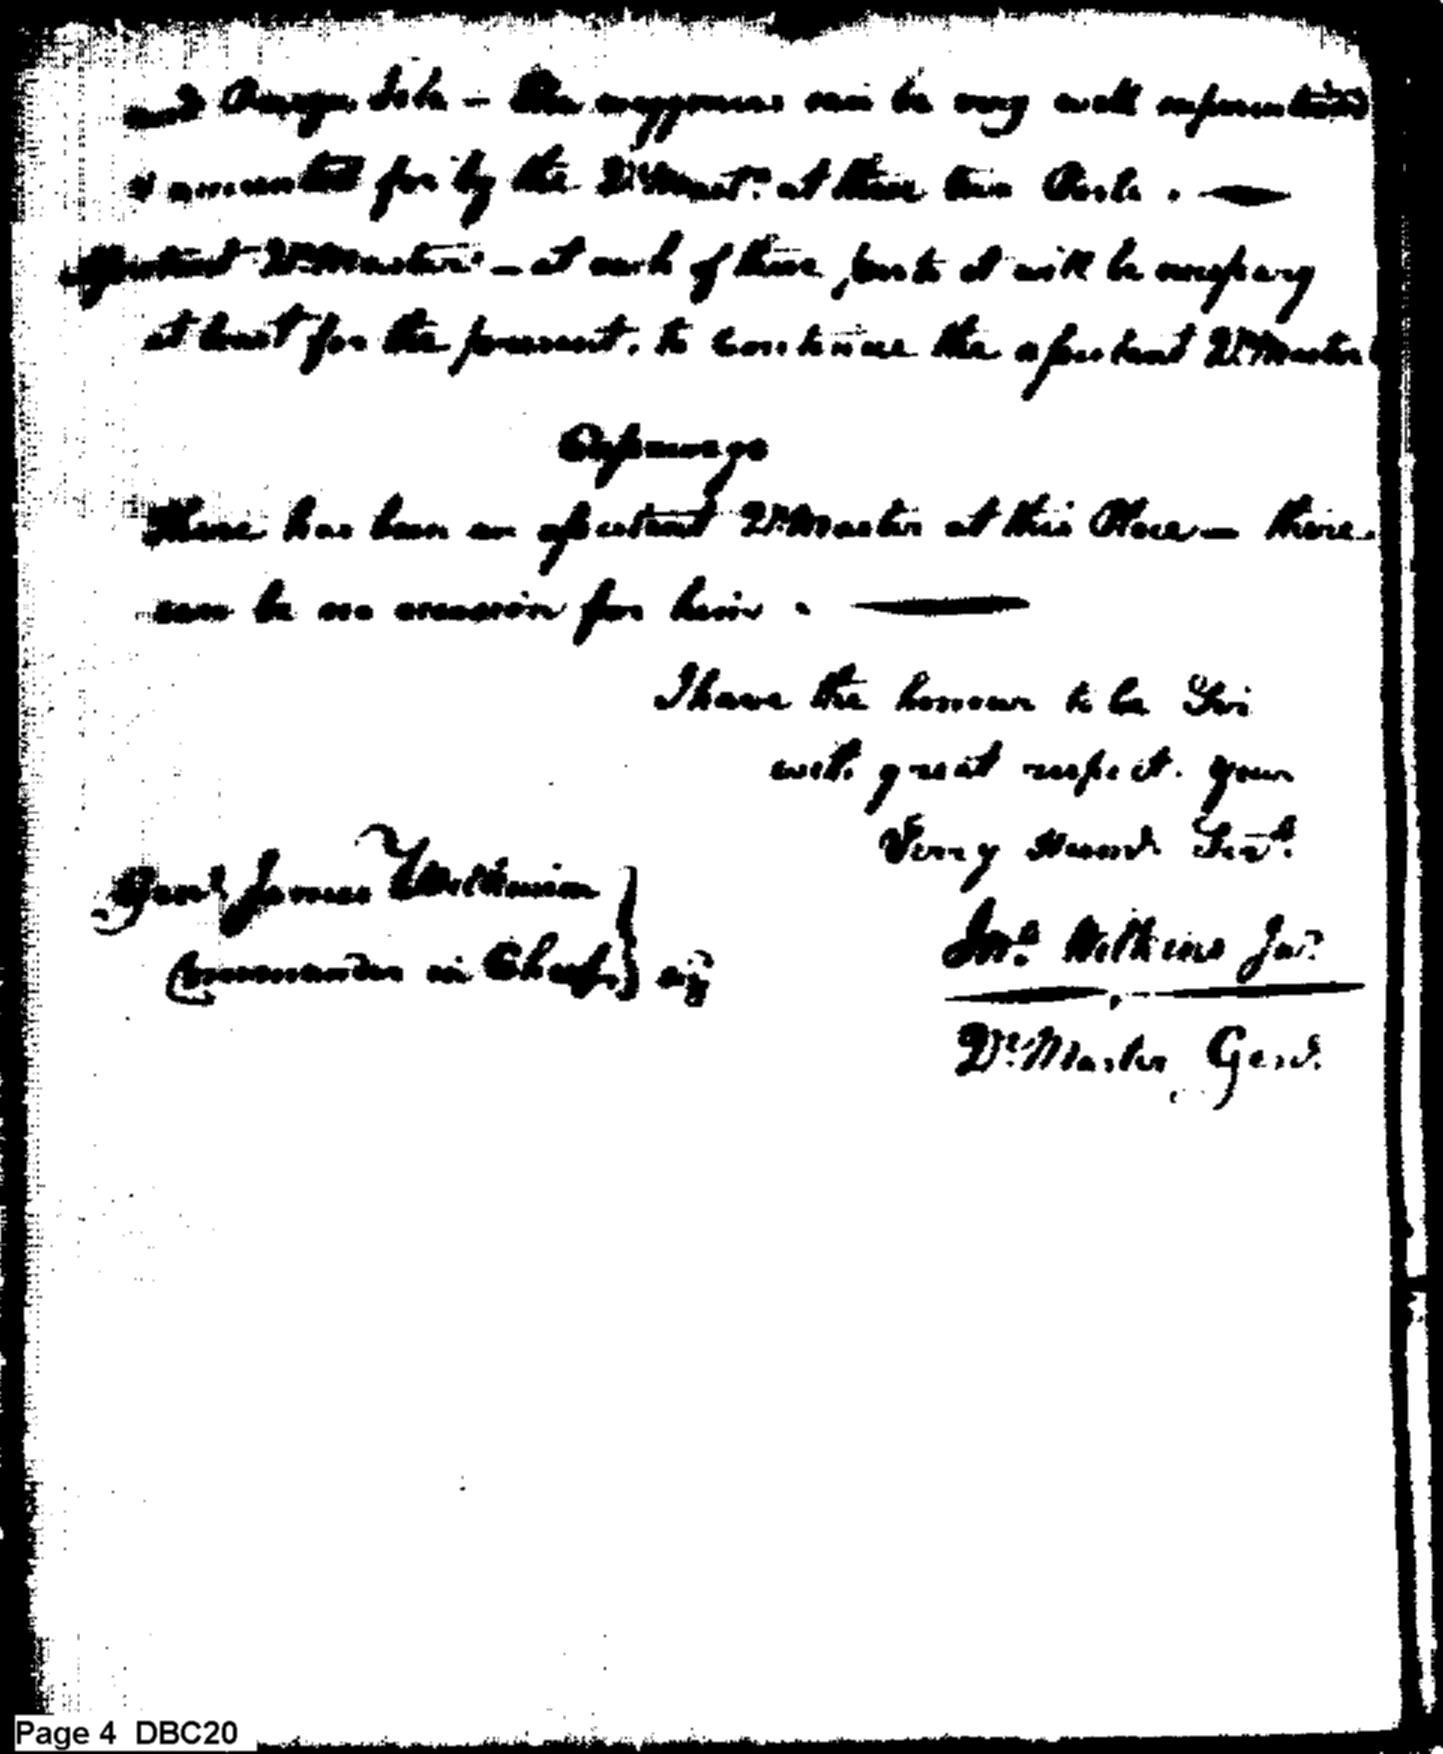 and Presqu Isle - The waggoners can be very well superintended
& accounted for by the Qr Mastrs at these two Posts.
Assistant Qr Masters - at each of these posts it will be necessary
at least for the present, to continue the assistant Qr Master
There has been an assistant Qr Master at this Place - there
can be no occasion for him.
I have the honour to be Sir
with great respect. your
Verry Humbl Servt.
Genl James Wilkinson
Commander in Chief
Jno. Wilkins Junr.
Qr. Master Genl.
Page 4 DBC20